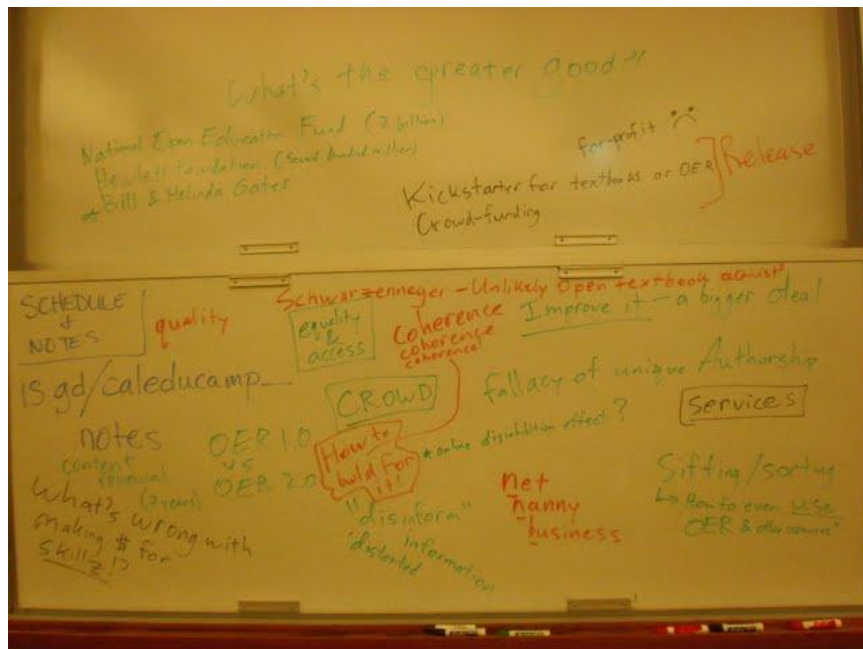 What's the greater good?!
National Open Education Fund (.2 billion)
Hewlett Foundation (
* Bill & Melinda Gates
for-profit
Kickstarter for textbooks or OER
Crowd-funding
Release
SCHEDULE
&
NOTES
quality
Schwarzenneger - Unlikely Open textbook activist
equality
&
access
coherence
coherence
coherence!
Improve it - a bigger deal
is.gd/caleducamp
CROWD
fallacy of unique Authorship
Services
notes
OER 1.0
vs
OER 2.0
How to
build for
it!
* online disinhibition effect?
content
renewal
(7 years)
What's wrong with
making $ for
skillz!?
"disinform"
distorted information
net
nanny
business
Sifting/sorting
How to even use
OER & other resources